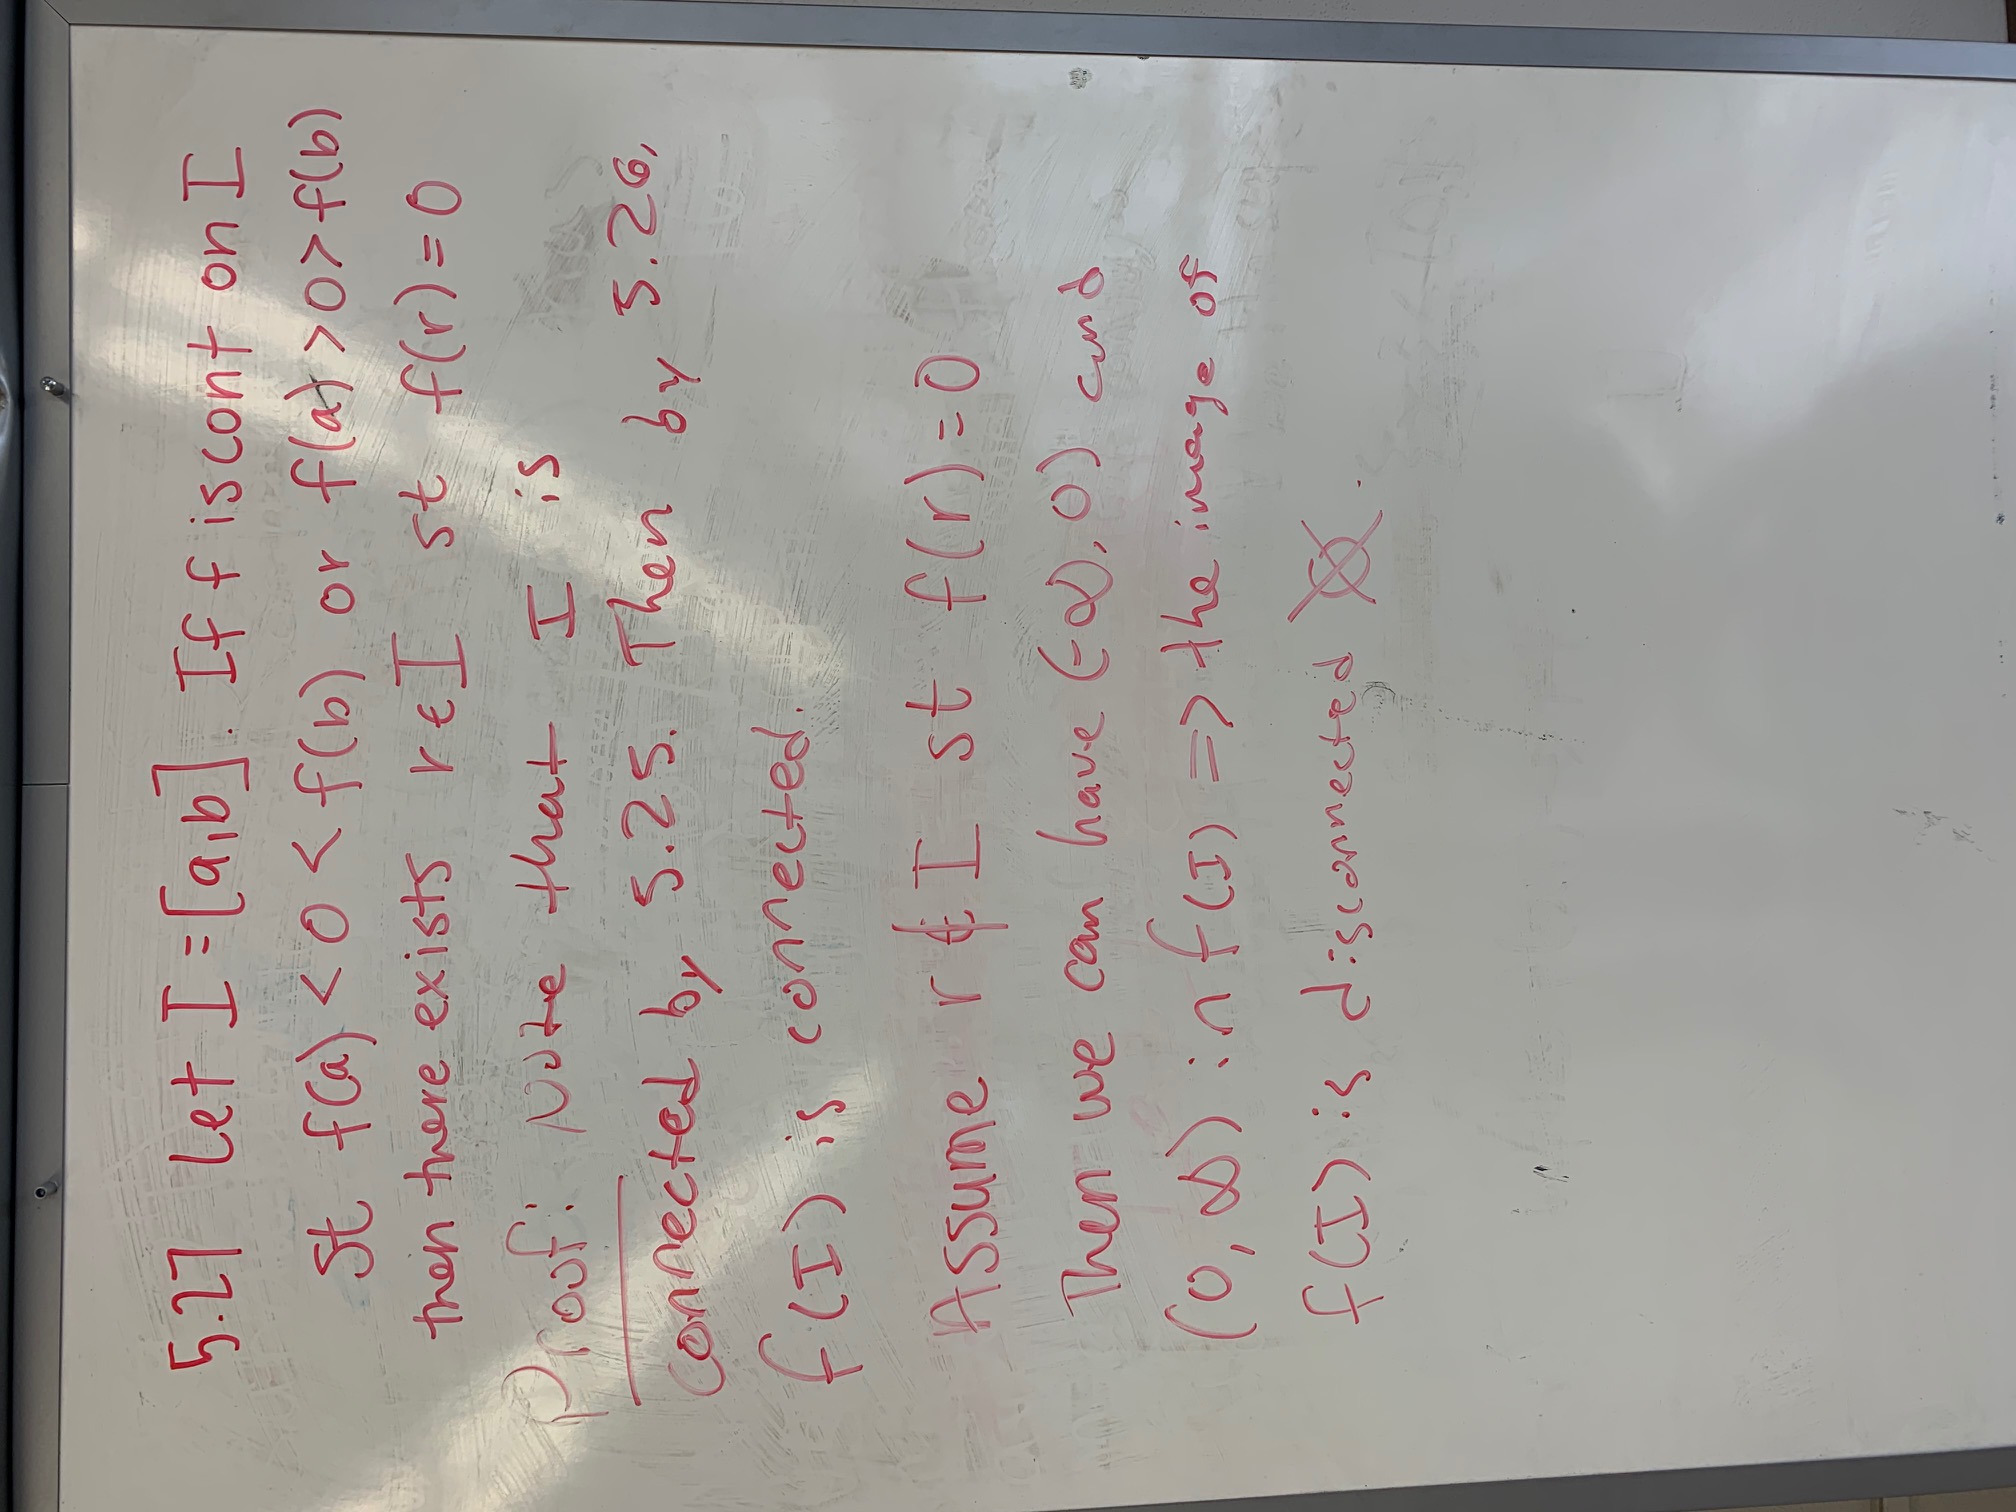 5.27 Let I = [a,b]. If f is cont on I
st f(a) < 0 < f(b) or f(a) > 0 > f(b)
then there exists r ∈ I st f(r) = 0
Proof: Note that I is
connected by 5.25. Then by 5.26,
f(I) is connected.
Assume r ∉ I st f(r) = 0
Then we can have (-∞, 0) and
(0, ∞) in f(I) => the image of
f(I) is disconnected ⊗.